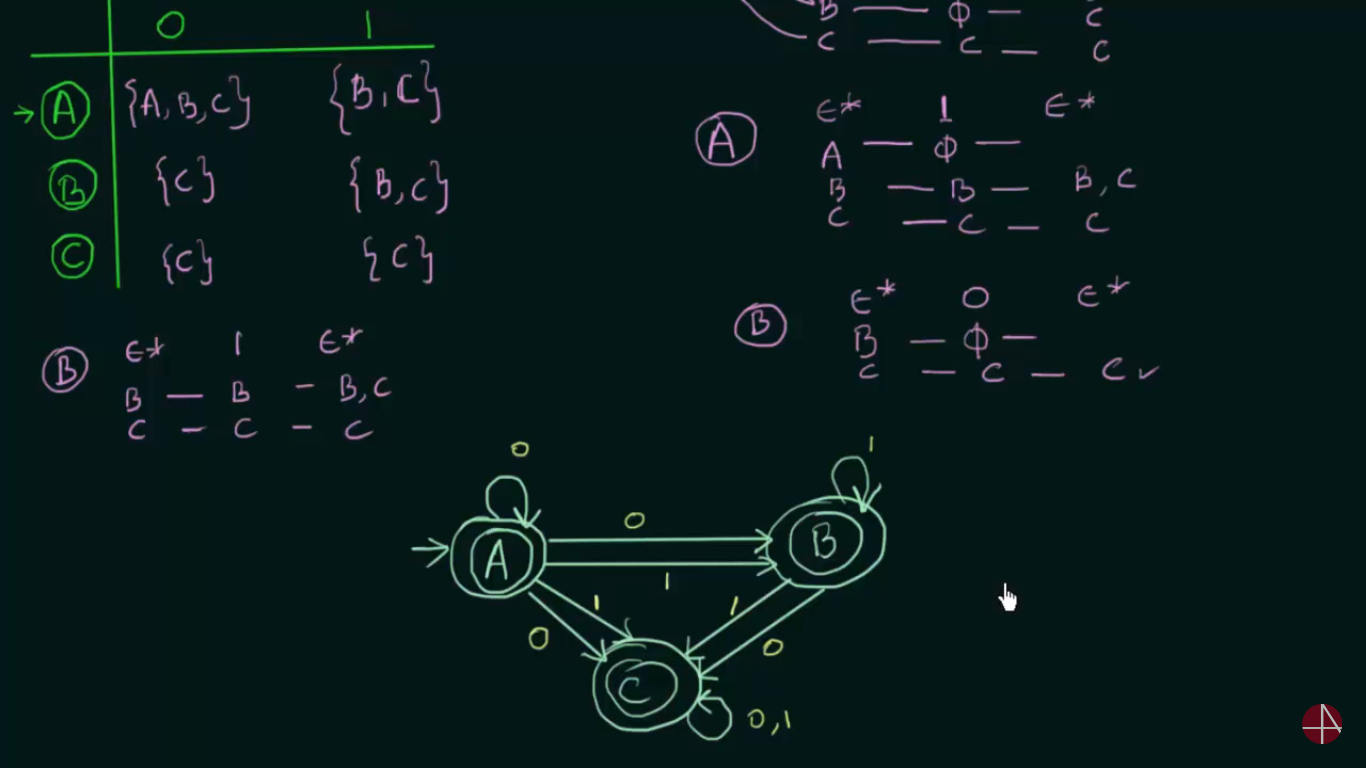 0 1
→ A {A, B, C} {B, C}
B {C} {B, C}
C {C} {C}
B ϵ* 1 ϵ*
B — B — B, C
C — C — C
B — Φ — C
C — C — C
A ϵ* 1 ϵ*
A — Φ —
B — B — B, C
C — C — C
B ϵ* 0 ϵ*
B — Φ —
C — C — C ✓
0
1
A
0
B
1
1
1
0
0
C
0,1